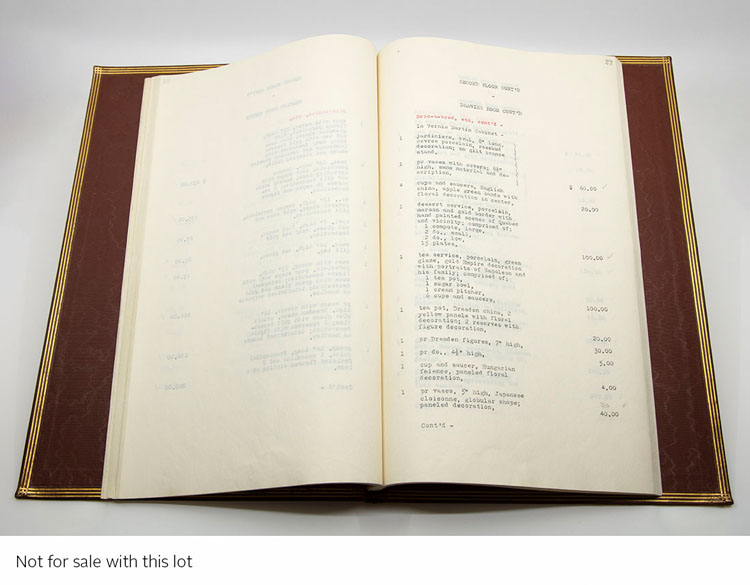 87
SECOND FLOOR CONT'D
-
DRAWING ROOM CONT'D
Bric-a-brac, etc. cont'd -
In Vernis Martin Cabinet -
1 jardiniere, oval, 8" long,
Sevres porcelain, rosebud
decoration; on gilt bronze
stand,
1 pr vases with covers;
high, same material and de-
scription,
cups and saucers, English
china, apple green bands with
floral decoration in center, $ 60.00
1 dessert service, porcelain, 20.00
maroon and gold border with
hand painted scenes of Quebec
and vicinity; comprised of;
1 compote, large,
2 do., small,
2 do., low,
15 plates,
1 tea service, porcelain, green 100.00
glaze, gold Empire decoration
with portraits of Napoleon and
his family; comprised of;
1 tea pot,
1 sugar bowl,
1 cream pitcher,
6 cups and saucers,
1 tea pot, Dresden china, 2 100.00
yellow panels with floral
decoration; 2 reserves with
figure decoration,
1 pr Dresden figures, 7" high, 20.00
1 pr do., 4½" high, 30.00
1 cup and saucer, Hungarian 5.00
faience, paneled floral
decoration,
1 pr vases, 5" high, Japanese 4.00
cloisonne, globular shape;
paneled decoration,
40.00
Cont'd -
Not for sale with this lot